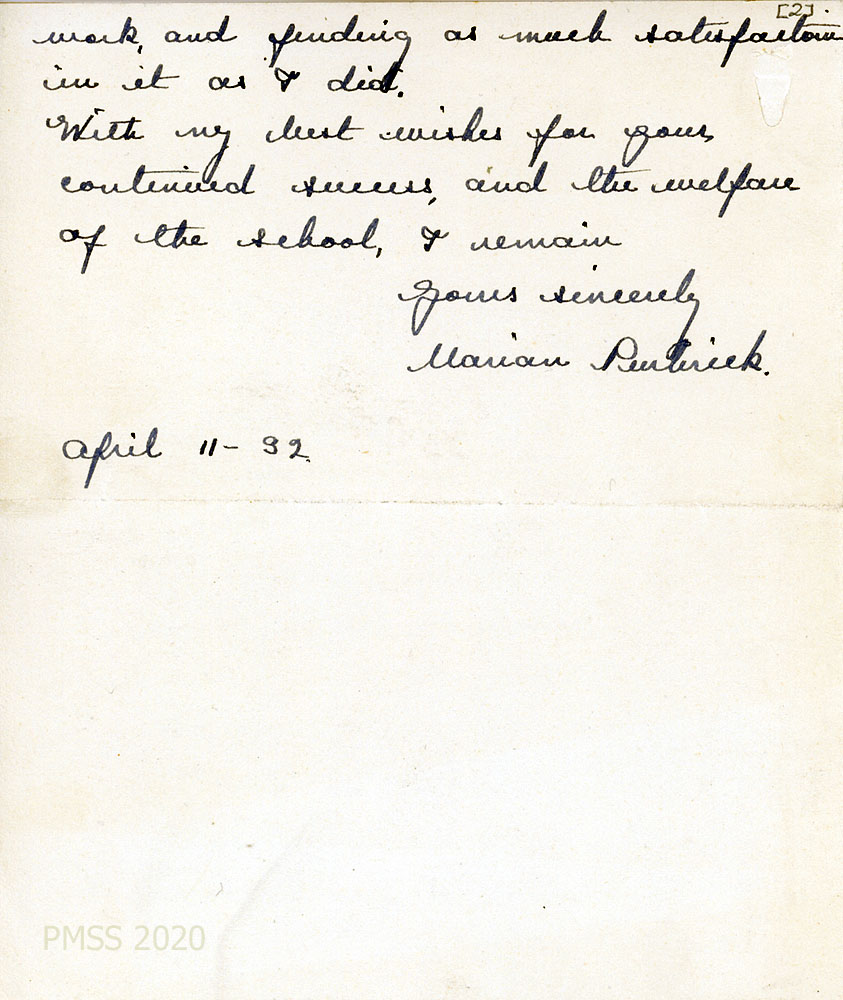 [2].
work, and finding as much satisfaction
in it as I did.
With my best wishes for your
continued success, and the welfare
of the school, I remain
Yours sincerely
Marian
April 11 - 32.
PMSS 2020